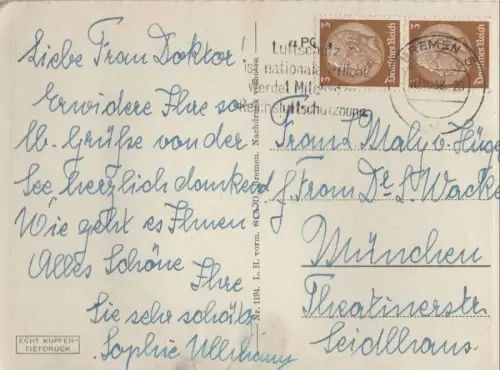 Liebe Frau Doktor!
Erwidere Ihre so
lb. Grüße von der
See herzlich dankend
Wie geht es Ihnen
Alles Schöne
Ihre
Sie sehr schätz.
Sophie
ECHT KUPFER-
TIEFDRUCK
Nr. 1194. L. H. vorm. Bremen. Nachdruck verboten
3
Deutsches Reich
3
Deutsches Reich
BREMEN
Luftschutz
ist
nationale Pflicht
Werdet Mitglied
Reichsluftschutzbund
Franz Maly v.
f. Frau Dr.
München
Theatinerstr
Seidlhaus.